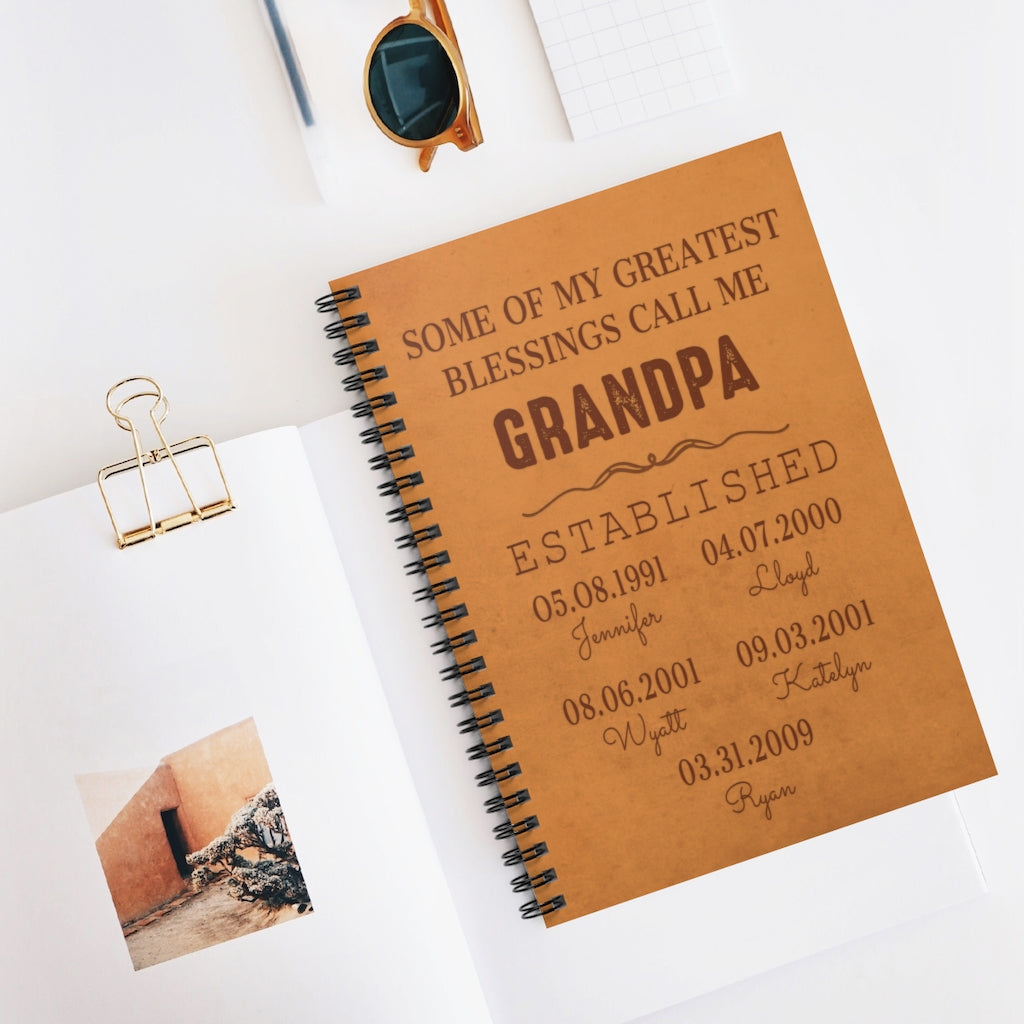 SOME OF MY GREATEST
BLESSINGS CALL ME
GRANDPA
ESTABLISHED
05.08.1991 04.07.2000
Jennifer Lloyd
08.06.2001 09.03.2001
Wyatt Katelyn
03.31.2009
Ryan